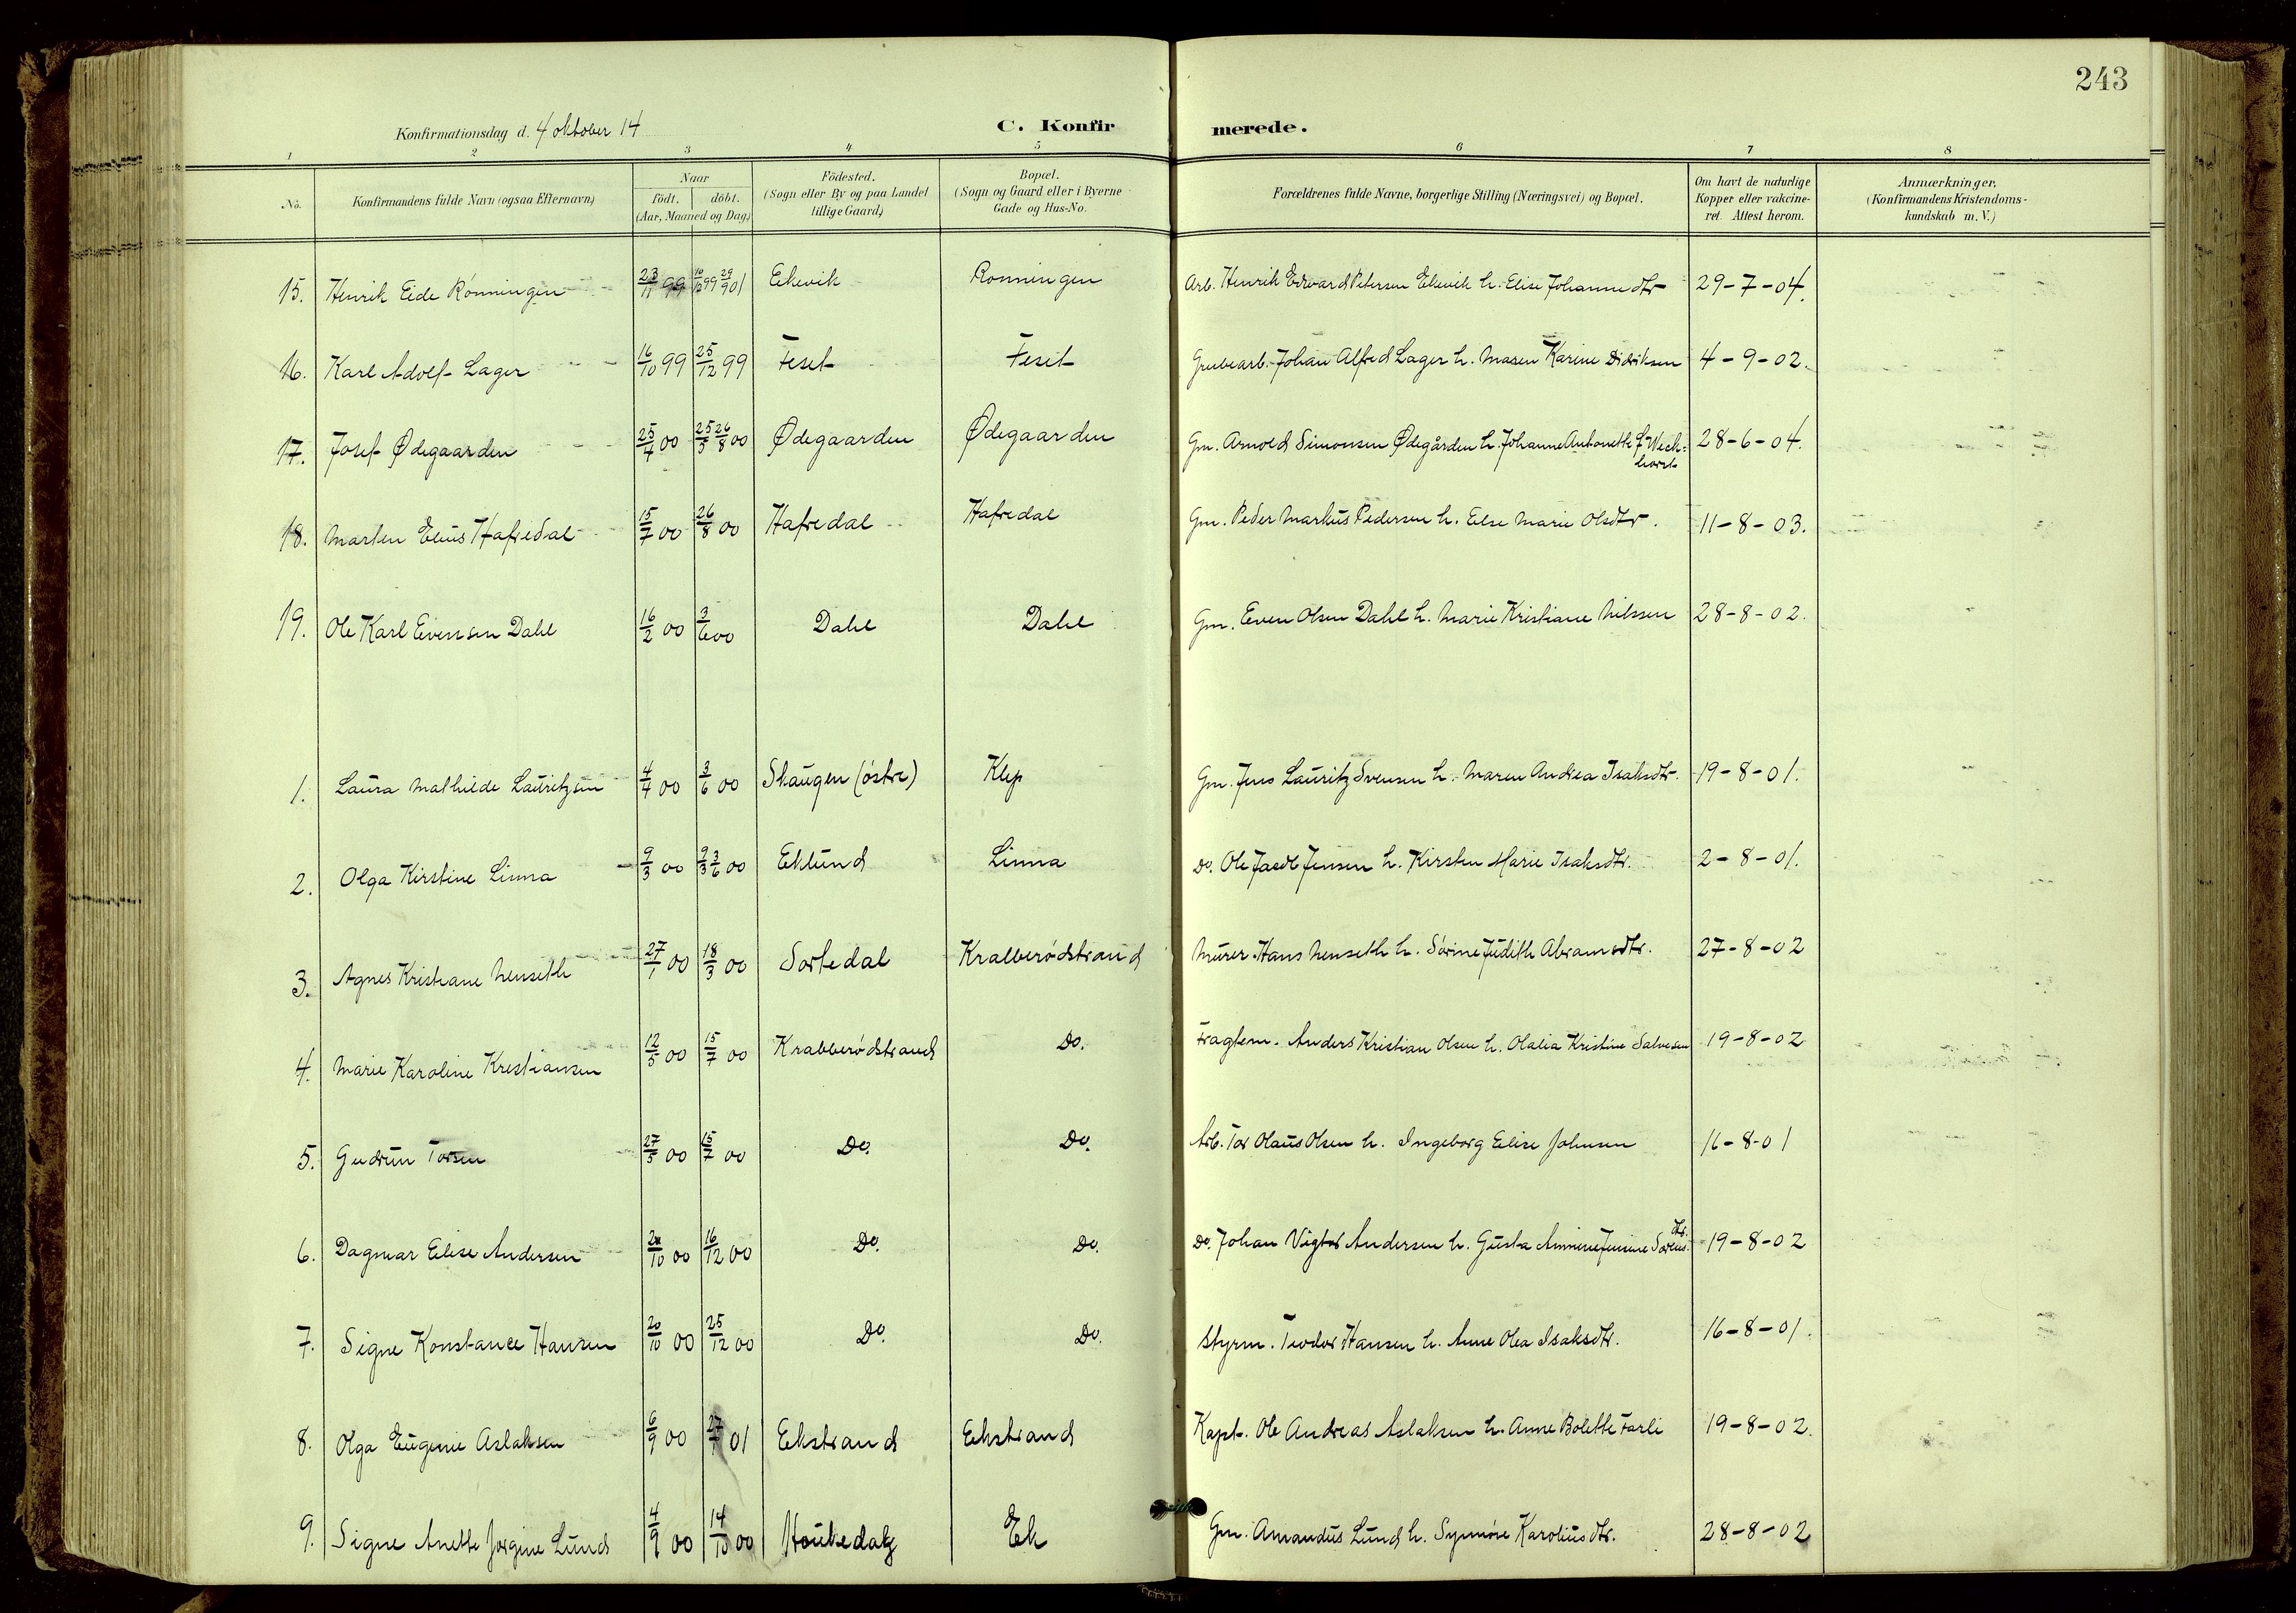 243
Konfirmationsdag d. 4 oktober 14
C. Konfirmerede.
1 2 3 4 5 6 7 8
No. Konfirmandens fulde Navn (ogsaa Efternavn) Naar födt. döbt. (Aar, Maaned og Dag) Födested. (Sogn eller By og paa Landet tillige Gaard) Bopæl. (Sogn og Gaard eller i Byerne Gade og Hus-No. Forældrenes fulde Navne, borgerlige Stilling (Næringsvei) og Bopæl. Om havt de naturlige Kopper eller vakcineret. Attest herom. Anmærkninger. (Konfirmandens Kristendomskundskab m. V.)
15. Henrik Eide Rönningen 23/11 99 10/12 99 29/9 01 Ekevik Ronningen Arb. Henrik Edvard Petersen Ekevik h. Elise Johannedtr 29-7-04.
16. Karl Adolf Lager 16/10 99 25/12 99 Feset Feset Grubearb. Johan Alfred Lager h. Maren Karine Didriksen 4-9-02.
17. Josef Ødegaarden 25/4 00 25/5 26/8 00 Ødegaarden Ødegaarden Gm. Arnold Simonsen Ødegården h. Johanne Antonette f. 28-6-04.
18. Marten Elius Hafredal 15/7 00 26/8 00 Hafredal Hafredal Gm. Peder Markus Pedersen h. Else Marie Olsdtr. 11-8-03.
19. Ole Karl Evensen Dahl 16/2 00 3/6 00 Dahl Dahl Gm. Even Olsen Dahl h. Marie Kristiane Nilssen 28-8-02.
1. Laura Mathilde Lauritzsen 4/4 00 3/6 00 Skaugen (östre) Klep Gm. Jens Lauritz Svensen h. Maren Andrea Isaksdtr. 19-8-01.
2. Olga Kirstine Linna 9/3 00 9/3 3/6 00 Eklund Linna Do. Ole Jacob Jensen h. Kirsten Marie Isaksdtr. 2-8-01.
3. Agnes Kristiane Nenseth 27/1 00 18/3 00 Sortedal Krabberødstrand Murer Hans Nenseth h. Sörine Judith Abramsdtr. 27-8-02
4. Marie Karoline Kristiansen 12/5 00 15/7 00 Krabberødstrand Do. Fragtem. Anders Kristian Olsen h. Olalia Kristine Salvesen 19-8-02
5. Gudrun Torsen 27/5 00 15/7 00 Do. Do. Arb. Tor Olaus Olsen h. Ingeborg Elise Johnsen 16-8-01
6. Dagmar Elise Andersen 20/10 00 16/12 00 Do. Do. Do. Johan Vigtor Andersen h. Gusta Jensine Sörensdtr. 19-8-02
7. Signe Konstance Hansen 20/10 00 25/12 00 Do. Do. Styrm. Teodor Hansen h. Anne Olea Isaksdtr. 16-8-01.
8. Olga Eugenie Aslaksen 6/9 00 27/1 01 Ekstrand Ekstrand Kapt. Ole Andreas Aslaksen h. Anne Bolette Farli 19-8-02.
9. Signe Anette Jorgine Lund 4/9 00 14/10 00 Ek Gm. Amandus Lund h. Synnöve Karoliusdtr. 28-8-02